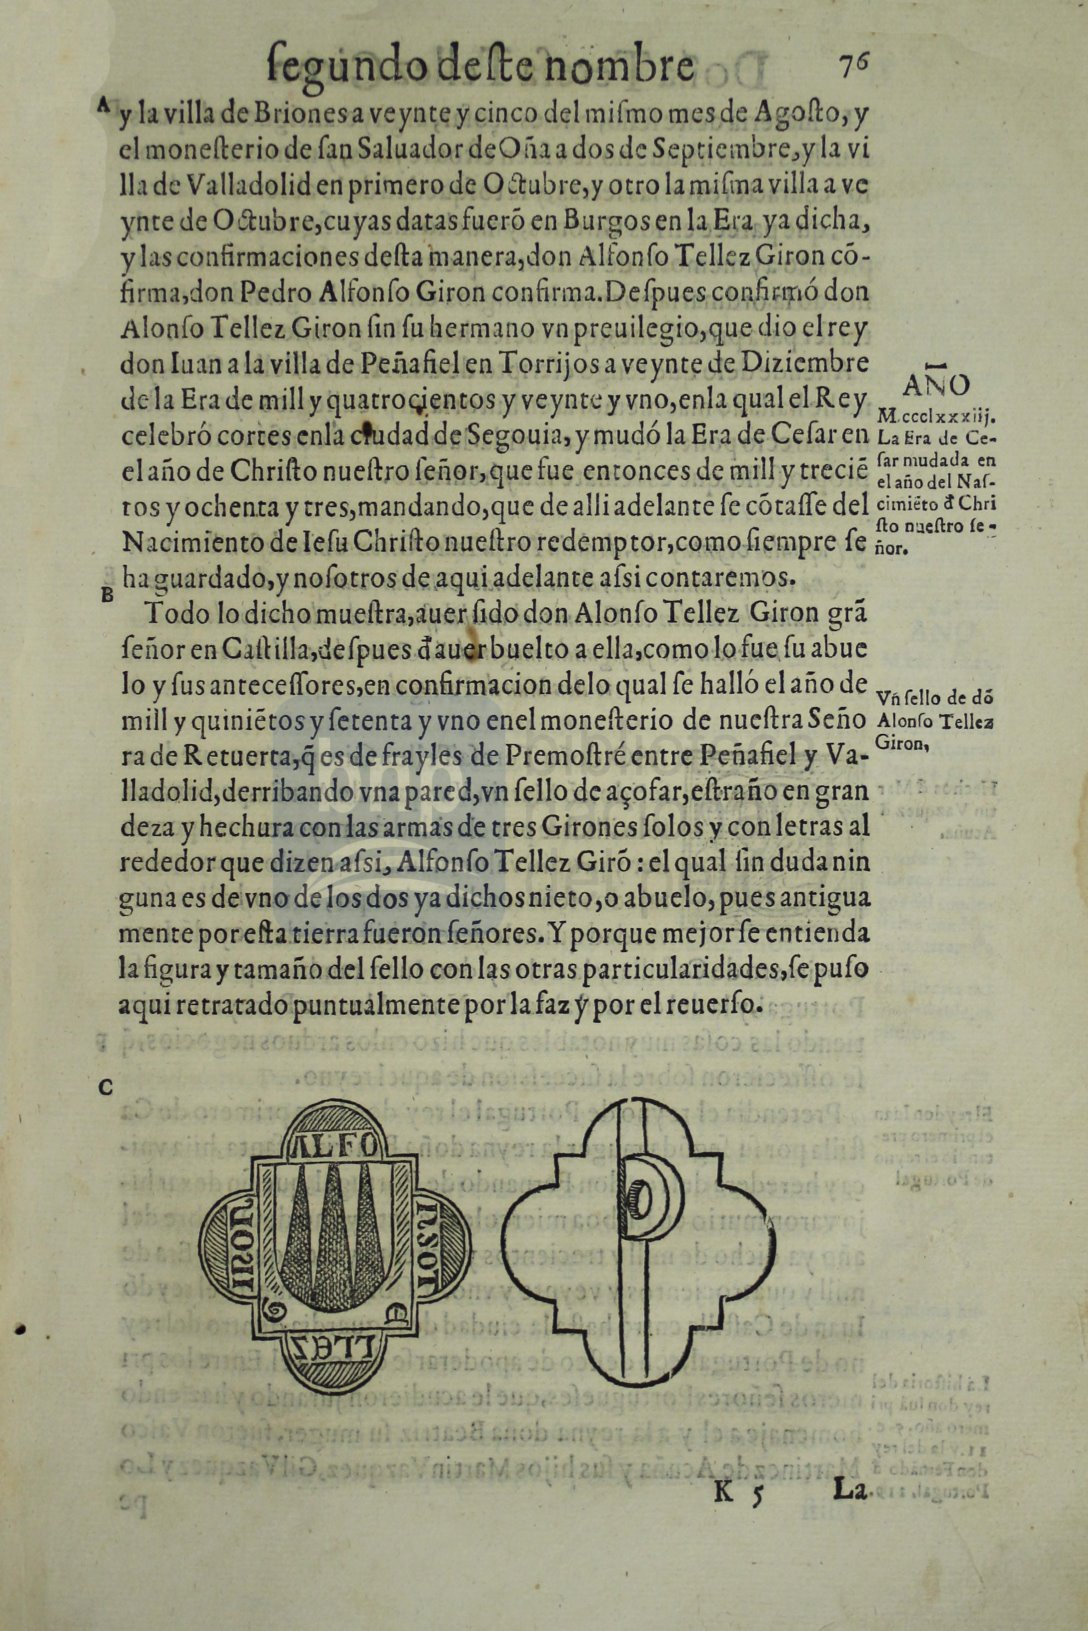 ſegundo deſte nombre 76
A y la villa de Briones a veynte y cinco del miſmo mes de Agoſto, y
el moneſterio de ſan Saluador de Oña a dos de Septiembre, y la vi
lla de Valladolid en primero de Octubre, y otro la miſma villa a ve
ynte de Octubre, cuyas datas fuerõ en Burgos en la Era ya dicha,
y las confirmaciones deſta manera, don Alfonſo Tellez Giron cõ-
firma, don Pedro Alfonſo Giron confirma. Deſpues confirmó don
Alonſo Tellez Giron ſin ſu hermano vn preuilegio, que dio el rey
don Iuan a la villa de Peñafiel en Torrijos a veynte de Diziembre
de la Era de mill y quatroçientos y veynte y vno, en la qual el Rey
celebró cortes enla ciudad de Segouia, y mudó la Era de Ceſar en
el año de Chriſto nueſtro ſeñor, que fue entonces de mill y treciẽ
tos y ochenta y tres, mandando, que de alli adelante ſe cõtaſſe del
Nacimiento de Ieſu Chriſto nueſtro redemptor, como ſiempre ſe
ha guardado, y noſotros de aqui adelante aſsi contaremos.
AÑO
M.ccclxxxiij.
La Era de Ce-
ſar mudada en
el año del Naſ-
cimiẽto đ Chri
ſto nueſtro ſe-
ñor.
B
Todo lo dicho mueſtra, auer ſido don Alonſo Tellez Giron grã
ſeñor en Caſtilla, deſpues đ auer buelto a ella, como lo fue ſu abue
lo y ſus anteceſſores, en confirmacion delo qual ſe halló el año de
mill y quiniẽtos y ſetenta y vno enel moneſterio de nueſtra Seño
ra de Retuerta, q̃ es de frayles de Premoſtré entre Peñafiel y Va-
lladolid, derribando vna pared, vn ſello de açofar, eſtraño en gran
deza y hechura con las armas de tres Girones ſolos y con letras al
rededor que dizen aſsi, Alfonſo Tellez Girõ: el qual ſin duda nin
guna es de vno de los dos ya dichos nieto, o abuelo, pues antigua
mente por eſta tierra fueron ſeñores. Y porque mejor ſe entienda
la figura y tamaño del ſello con las otras particularidades, ſe puſo
aqui retratado puntualmente por la faz y por el reuerſo.
Vñ ſello de dõ
Alonſo Tellez
Giron,
C
ALFO
NSOT
E
LLEZ
G
IRONI
K 5 La